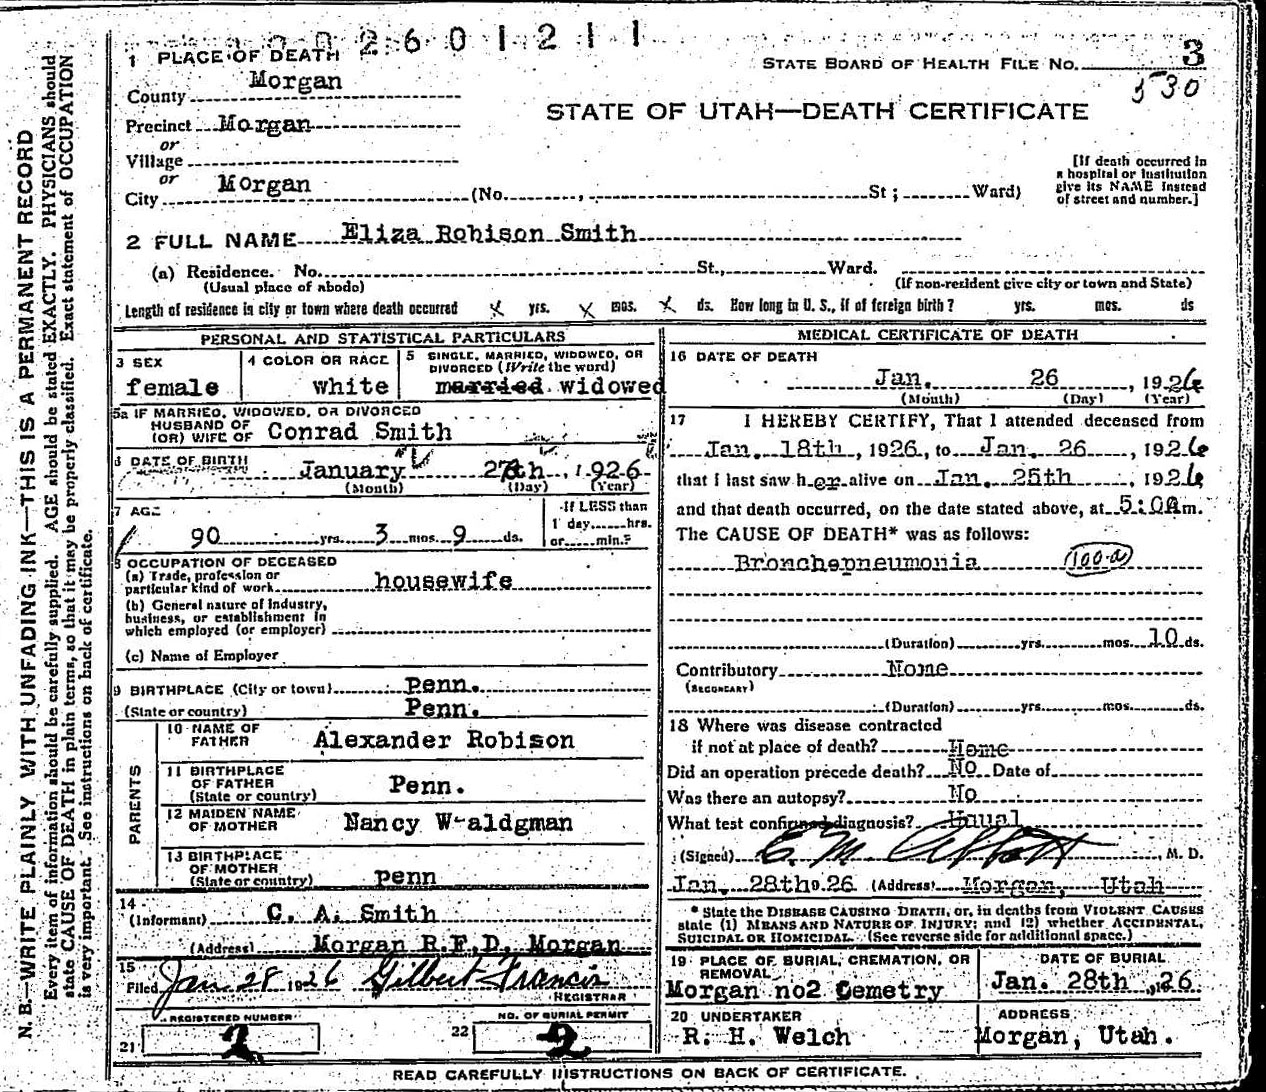 2 6 0 1 2 1 1
1 PLACE OF DEATH
STATE BOARD OF HEALTH FILE NO. 3
530
County Morgan
STATE OF UTAH—DEATH CERTIFICATE
Precinct Morgan
or
Village
or
City Morgan (No. , St ; Ward)
[If death occurred in
a hospital or institution
give its NAME instead
of street and number.]
2 FULL NAME Eliza Robison Smith
(a) Residence. No. St., Ward.
(Usual place of abode) (If non-resident give city or town and State)
Length of residence in city or town where death occurred x yrs. x mos. x ds. How long in U. S., if of foreign birth? yrs. mos. ds
PERSONAL AND STATISTICAL PARTICULARS
3 SEX
female
4 COLOR OR RACE
white
5 SINGLE, MARRIED, WIDOWED, OR
DIVORCED (Write the word)
married widowed
5a IF MARRIED, WIDOWED, OR DIVORCED
HUSBAND OF
(OR) WIFE OF Conrad Smith
6 DATE OF BIRTH
January 27th, 1926
(Month) (Day) (Year)
7 AGE
90 yrs. 3 mos. 9 ds.
If LESS than
1 day hrs.
or min.?
8 OCCUPATION OF DECEASED
(a) Trade, profession or
particular kind of work housewife
(b) General nature of Industry,
business, or establishment in
which employed (or employer)
(c) Name of Employer
9 BIRTHPLACE (City or town) Penn.
(State or country) Penn.
PARENTS
10 NAME OF
FATHER Alexander Robison
11 BIRTHPLACE
OF FATHER
(State or country) Penn.
12 MAIDEN NAME
OF MOTHER Nancy W-aldgman
13 BIRTHPLACE
OF MOTHER
(State or country) penn
14
(Informant) C. A. Smith
(Address) Morgan R.F.D. Morgan
15
Filed Jan. 28 1926 Gilbert Francis
REGISTRAR
REGISTERED NUMBER
21 2
NO. OF BURIAL PERMIT
22 2
MEDICAL CERTIFICATE OF DEATH
16 DATE OF DEATH
Jan. 26, 1926
(Month) (Day) (Year)
17 I HEREBY CERTIFY, That I attended deceased from
Jan. 18th, 1926, to Jan. 26, 1926
that I last saw her alive on Jan. 25th, 1926
and that death occurred, on the date stated above, at 5:00Am.
The CAUSE OF DEATH* was as follows:
Bronchepneumonia 100-a
(Duration) yrs. mos. 10 ds.
Contributory None
(SECONDARY)
(Duration) yrs. mos. ds.
18 Where was disease contracted
if not at place of death? Home
Did an operation precede death? No Date of
Was there an autopsy? No
What test confirmed diagnosis? Usual
(Signed) E. M. Abbott, M. D.
Jan. 28th 926 (Address) Morgan, Utah
* State the DISEASE CAUSING DEATH, or, in deaths from VIOLENT CAUSES
state (1) MEANS AND NATURE OF INJURY; and (2) whether ACCIDENTAL,
SUICIDAL OR HOMICIDAL. (See reverse side for additional space.)
19 PLACE OF BURIAL, CREMATION, OR
REMOVAL
Morgan no2 Cemetry
DATE OF BURIAL
Jan. 28th, 26
20 UNDERTAKER
R. H. Welch
ADDRESS
Morgan, Utah.
READ CAREFULLY INSTRUCTIONS ON BACK OF CERTIFICATE.
N. B.—WRITE PLAINLY WITH UNFADING INK—THIS IS A PERMANENT RECORD
Every item of information should be carefully supplied. AGE should be stated EXACTLY. PHYSICIANS should
state CAUSE OF DEATH in plain terms, so that it may be properly classified. Exact statement of OCCUPATION
is very important. See instructions on back of certificate.